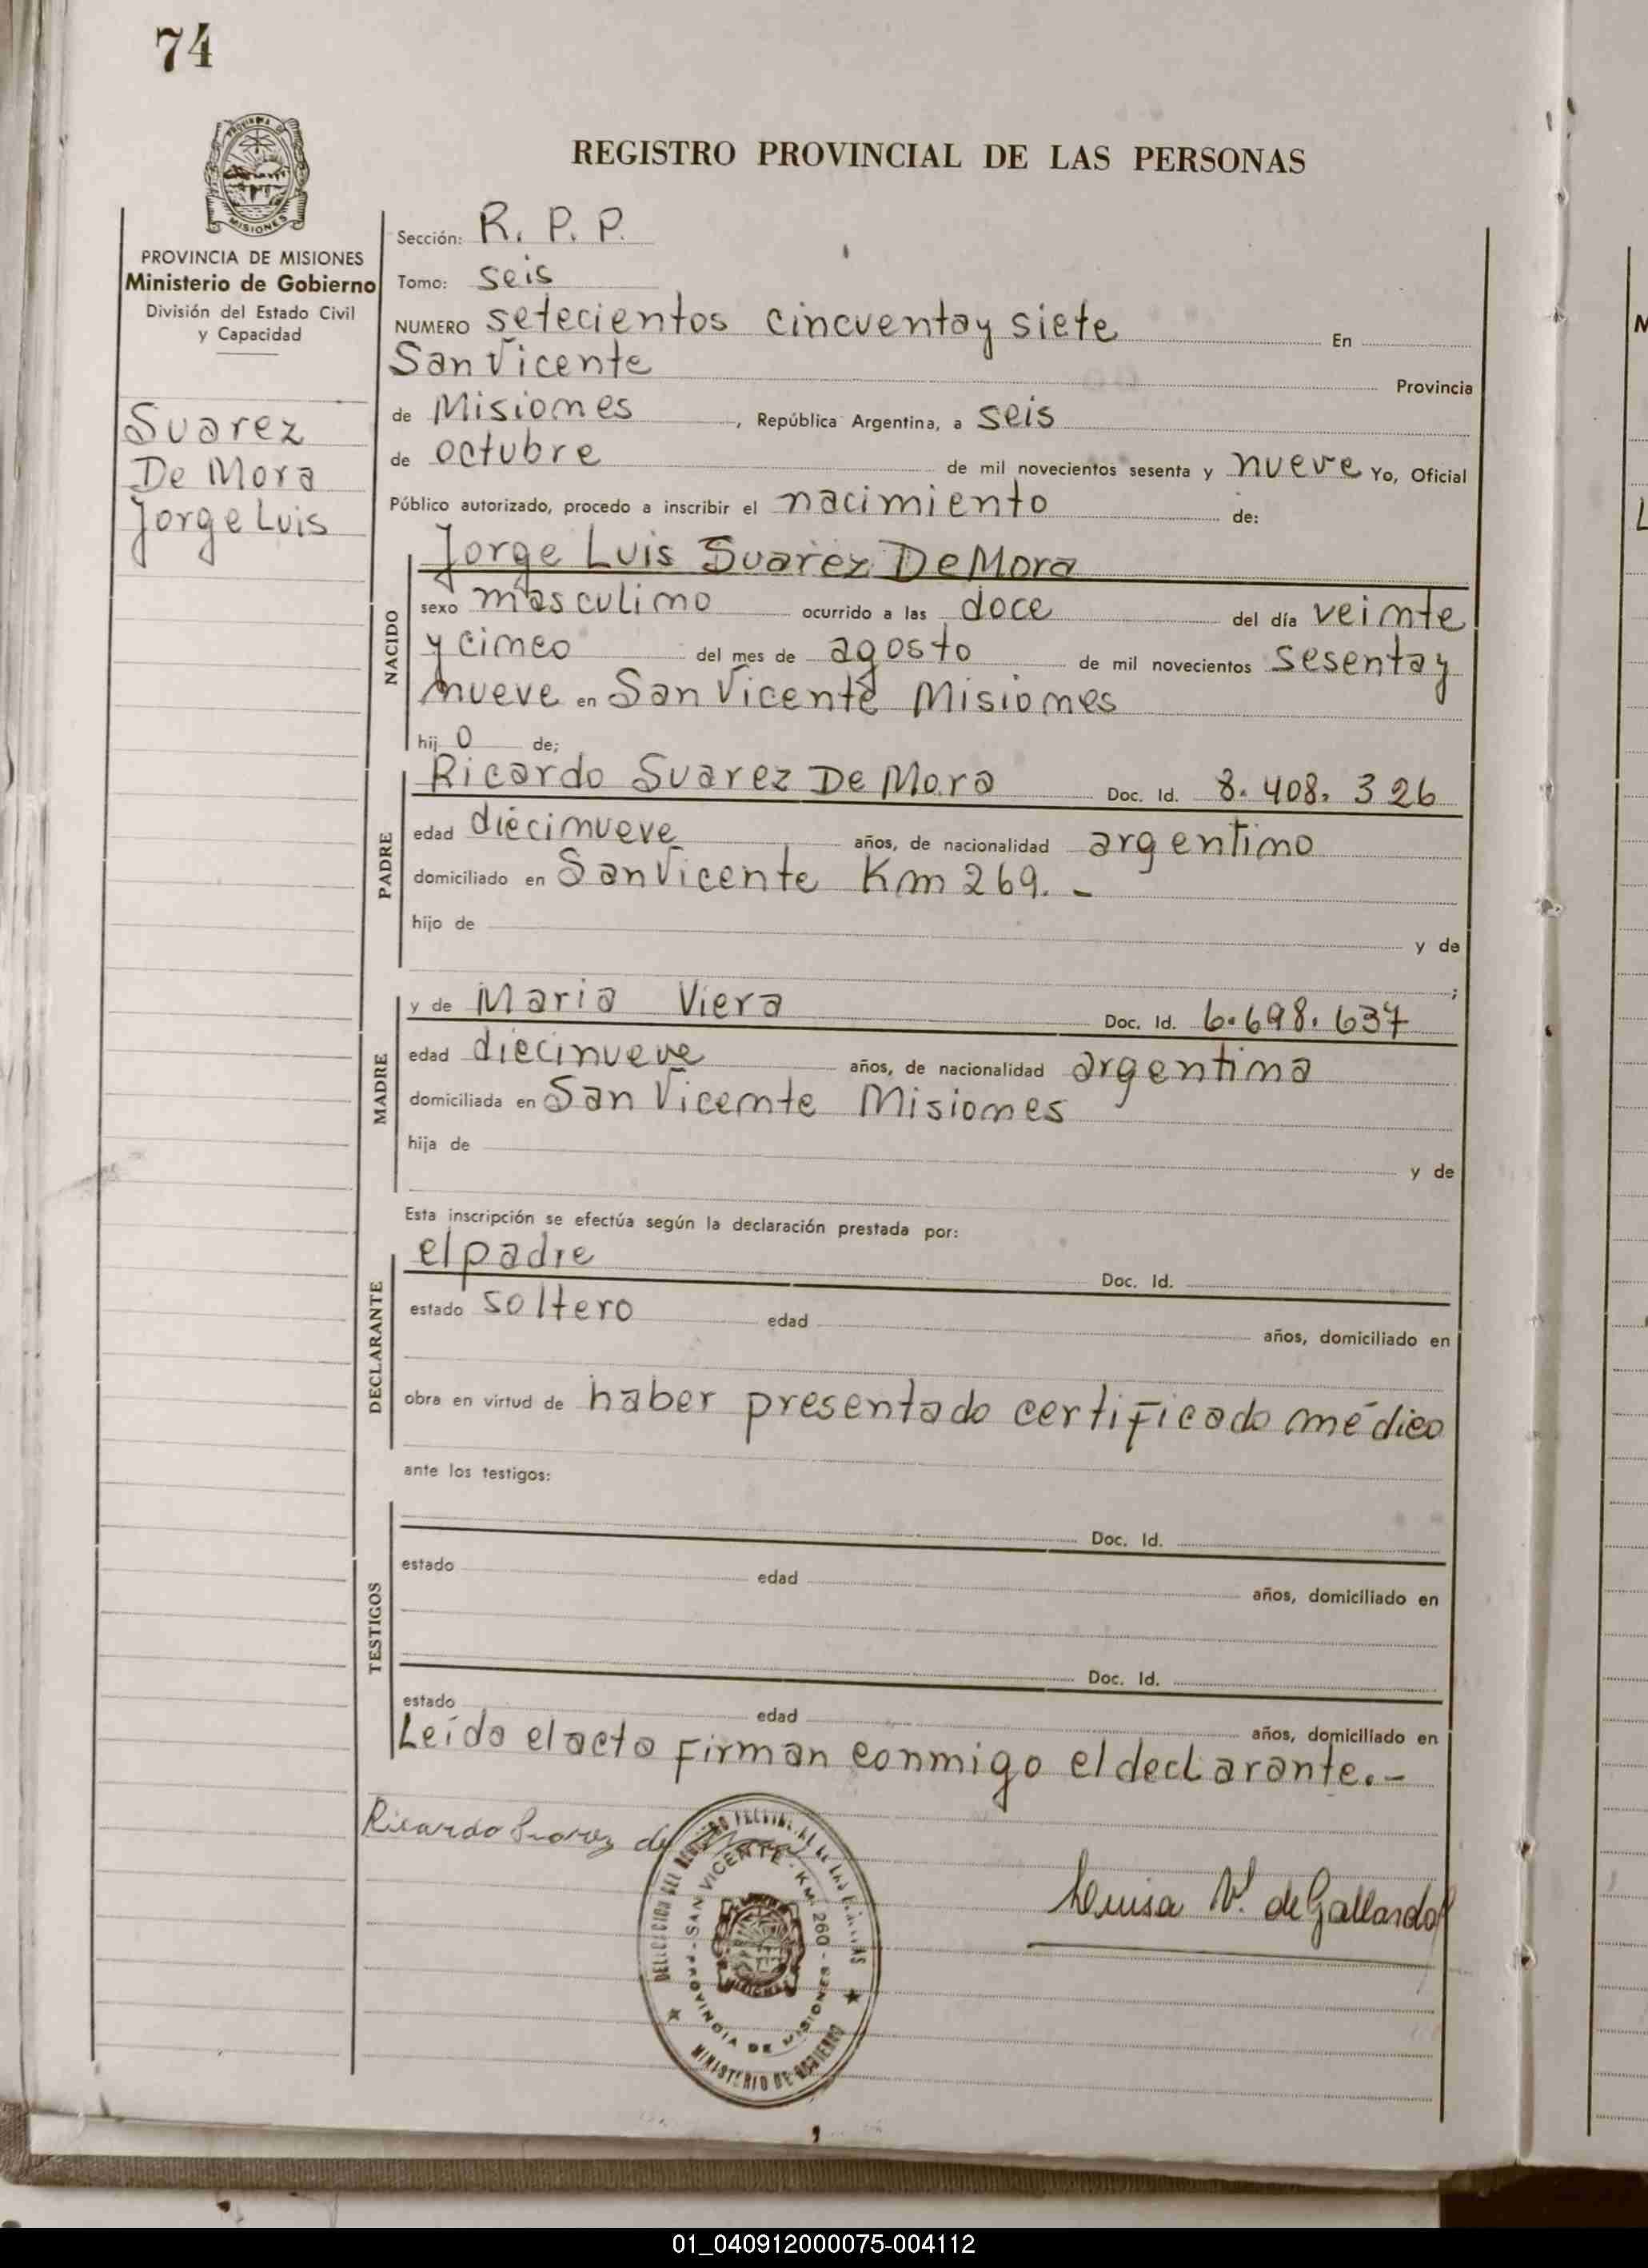 74
PROVINCIA DE
MISIONES
REGISTRO PROVINCIAL DE LAS PERSONAS
PROVINCIA DE MISIONES
Ministerio de Gobierno
División del Estado Civil
y Capacidad
Suarez
De Mora
Jorge Luis
Sección: R. P. P.
Tomo: seis
NUMERO setecientos cincuenta y siete En
San Vicente Provincia
de Misiones, República Argentina, a seis
de octubre de mil novecientos sesenta y nueve Yo, Oficial
Público autorizado, procedo a inscribir el nacimiento de:
NACIDO
Jorge Luis Suarez De Mora
sexo masculino ocurrido a las doce del día veinte
y cinco del mes de agosto de mil novecientos sesenta y
nueve en San Vicente Misiones
hij o de;
PADRE
Ricardo Suarez De Mora Doc. Id. 8.408.326
edad diecinueve años, de nacionalidad argentino
domiciliado en San Vicente Km 269.-
hijo de y de
;
MADRE
y de Maria Viera Doc. Id. 6.698.637
edad diecinueve años, de nacionalidad argentina
domiciliada en San Vicente Misiones
hija de y de
Esta inscripción se efectúa según la declaración prestada por:
DECLARANTE
el padre Doc. Id.
estado soltero edad años, domiciliado en
obra en virtud de haber presentado certificado médico
ante los testigos:
TESTIGOS
Doc. Id.
estado edad años, domiciliado en
Doc. Id.
estado edad años, domiciliado en
Leído el acto firman conmigo el declarante.-
Ricardo Suarez de Mora
DELEGACION DEL REGISTRO PROVINCIAL DE LAS PERSONAS
SAN VICENTE - KM 260 -
PROVINCIA DE MISIONES
MISIONES
MINISTERIO DE GOBIERNO
Luisa V. de Gallardo
01_040912000075-004112